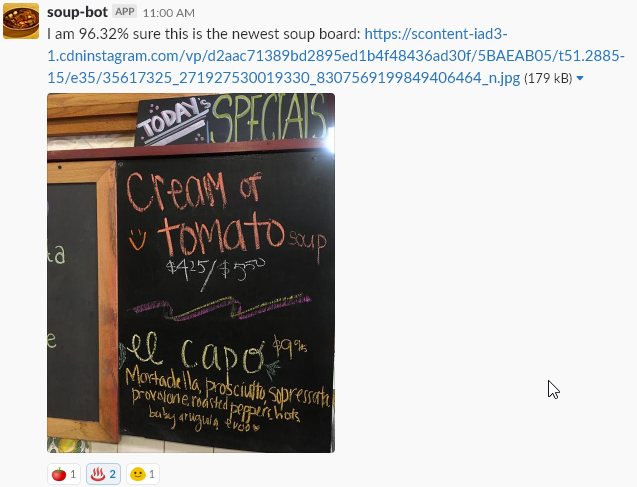 soup-bot APP 11:00 AM
I am 96.32% sure this is the newest soup board: https://scontent-iad3-
1.cdninstagram.com/vp/d2aac71389bd2895ed1b4f48436ad30f/5BAEAB05/t51.2885-
15/e35/35617325_271927530019330_8307569199849406464_n.jpg (179 kB)
TODAY's SPECIALS
Cream of
tomato soup
$4.25/$5.50
ta
e
el capo $9.95
Mortadella, prosciutto, sopressata
provolone, roasted peppers, hots,
baby arugula &
1 2 1